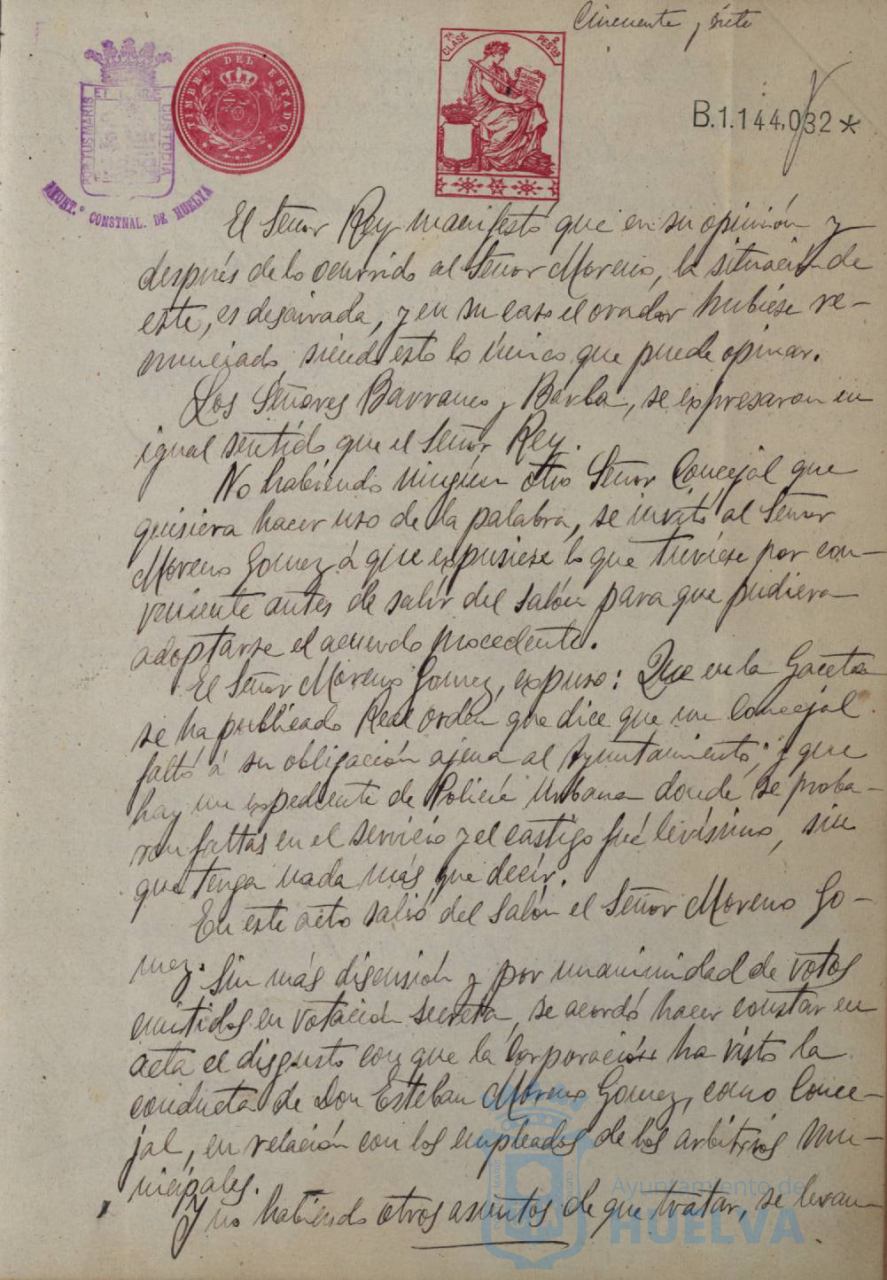 Cincuenta y siete
7ª CLASE 2 PESTAS
TIMBRE DEL ESTADO
PORTUS MARIS ET TERRAE CUSTODIA
AYUNT.º CONSTNAL. DE HUELVA
B.1.144,032*
El Señor Rey manifestó que en su opinión y
después de lo ocurrido al Señor Moreno, la situación de
este, es desairada, y en su caso el orador hubiese re-
nunciado, siendo esto lo único que puede opinar.
Los Señores Barranco y Barba, se expresaron en
igual sentido que el Señor Rey.
No habiendo ningún otro Señor Concejal que
quisiera hacer uso de la palabra, se invitó al Señor
Moreno Gomez á que expusiese lo que tuviese por con-
veniente antes de salir del salón para que pudiera
adoptarse el acuerdo procedente.
El Señor Moreno Gomez, expuso: Que en la Gaceta
se ha publicado Real orden que dice que un Concejal
faltó á su obligación ajena al Ayuntamiento; y que
hay un expediente de Policía Urbana donde se proba-
ron faltas en el servicio y el castigo fué levísimo, sin
que tenga nada más que decir.
En este acto salió del Salón el Señor Moreno Go-
mez. Sin más discusión y por unanimidad de votos
emitidos en votación secreta, se acordó hacer constar en
acta el disgusto con que la Corporación ha visto la
conducta de Don Esteban Moreno Gomez, como Conce-
jal, en relación con los empleados de los arbitrios mu-
nicipales.
Y no habiendo otros asuntos de que tratar, se levan-
Ayuntamiento de
HUELVA